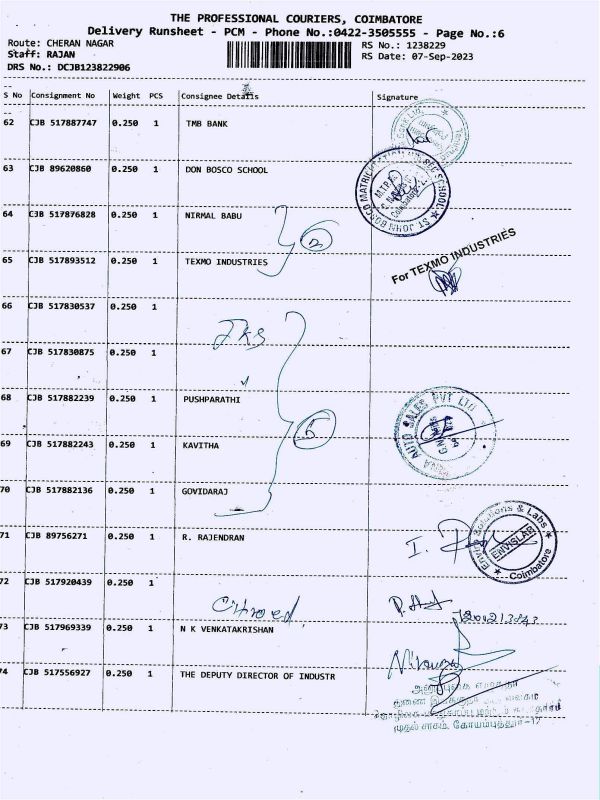 THE PROFESSIONAL COURIERS, COIMBATORE
Delivery Runsheet - PCM - Phone No.:0422-3505555 - Page No.:6
Route: CHERAN NAGAR RS No.: 1238229
Staff: RAJAN RS Date: 07-Sep-2023
DRS No.: DCJB123822906
S No Consignment No Weight PCS Consignee Details Signature
62 CJB 517887747 0.250 1 TMB BANK
63 CJB 89620860 0.250 1 DON BOSCO SCHOOL
ST JOHN BOSCO MATRICULATION HR SEC SCHOOL
64 CJB 517876828 0.250 1 NIRMAL BABU
65 CJB 517893512 0.250 1 TEXMO INDUSTRIES
For TEXMO INDUSTRIES
66 CJB 517830537 0.250 1
67 CJB 517830875 0.250 1
68 CJB 517882239 0.250 1 PUSHPARATHI
AUTO SALES PVT LTD
69 CJB 517882243 0.250 1 KAVITHA
5
70 CJB 517882136 0.250 1 GOVIDARAJ
71 CJB 89756271 0.250 1 R. RAJENDRAN
Enviro Solutions & Labs
ENVISLAB
Coimbatore
72 CJB 517920439 0.250 1
73 CJB 517969339 0.250 1 N K VENKATAKRISHAN
74 CJB 517556927 0.250 1 THE DEPUTY DIRECTOR OF INDUSTR